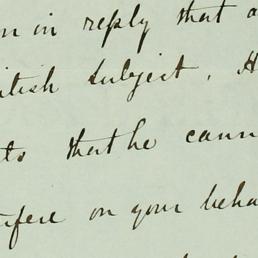 in reply that
British Subject. H
that he cann
on your beha